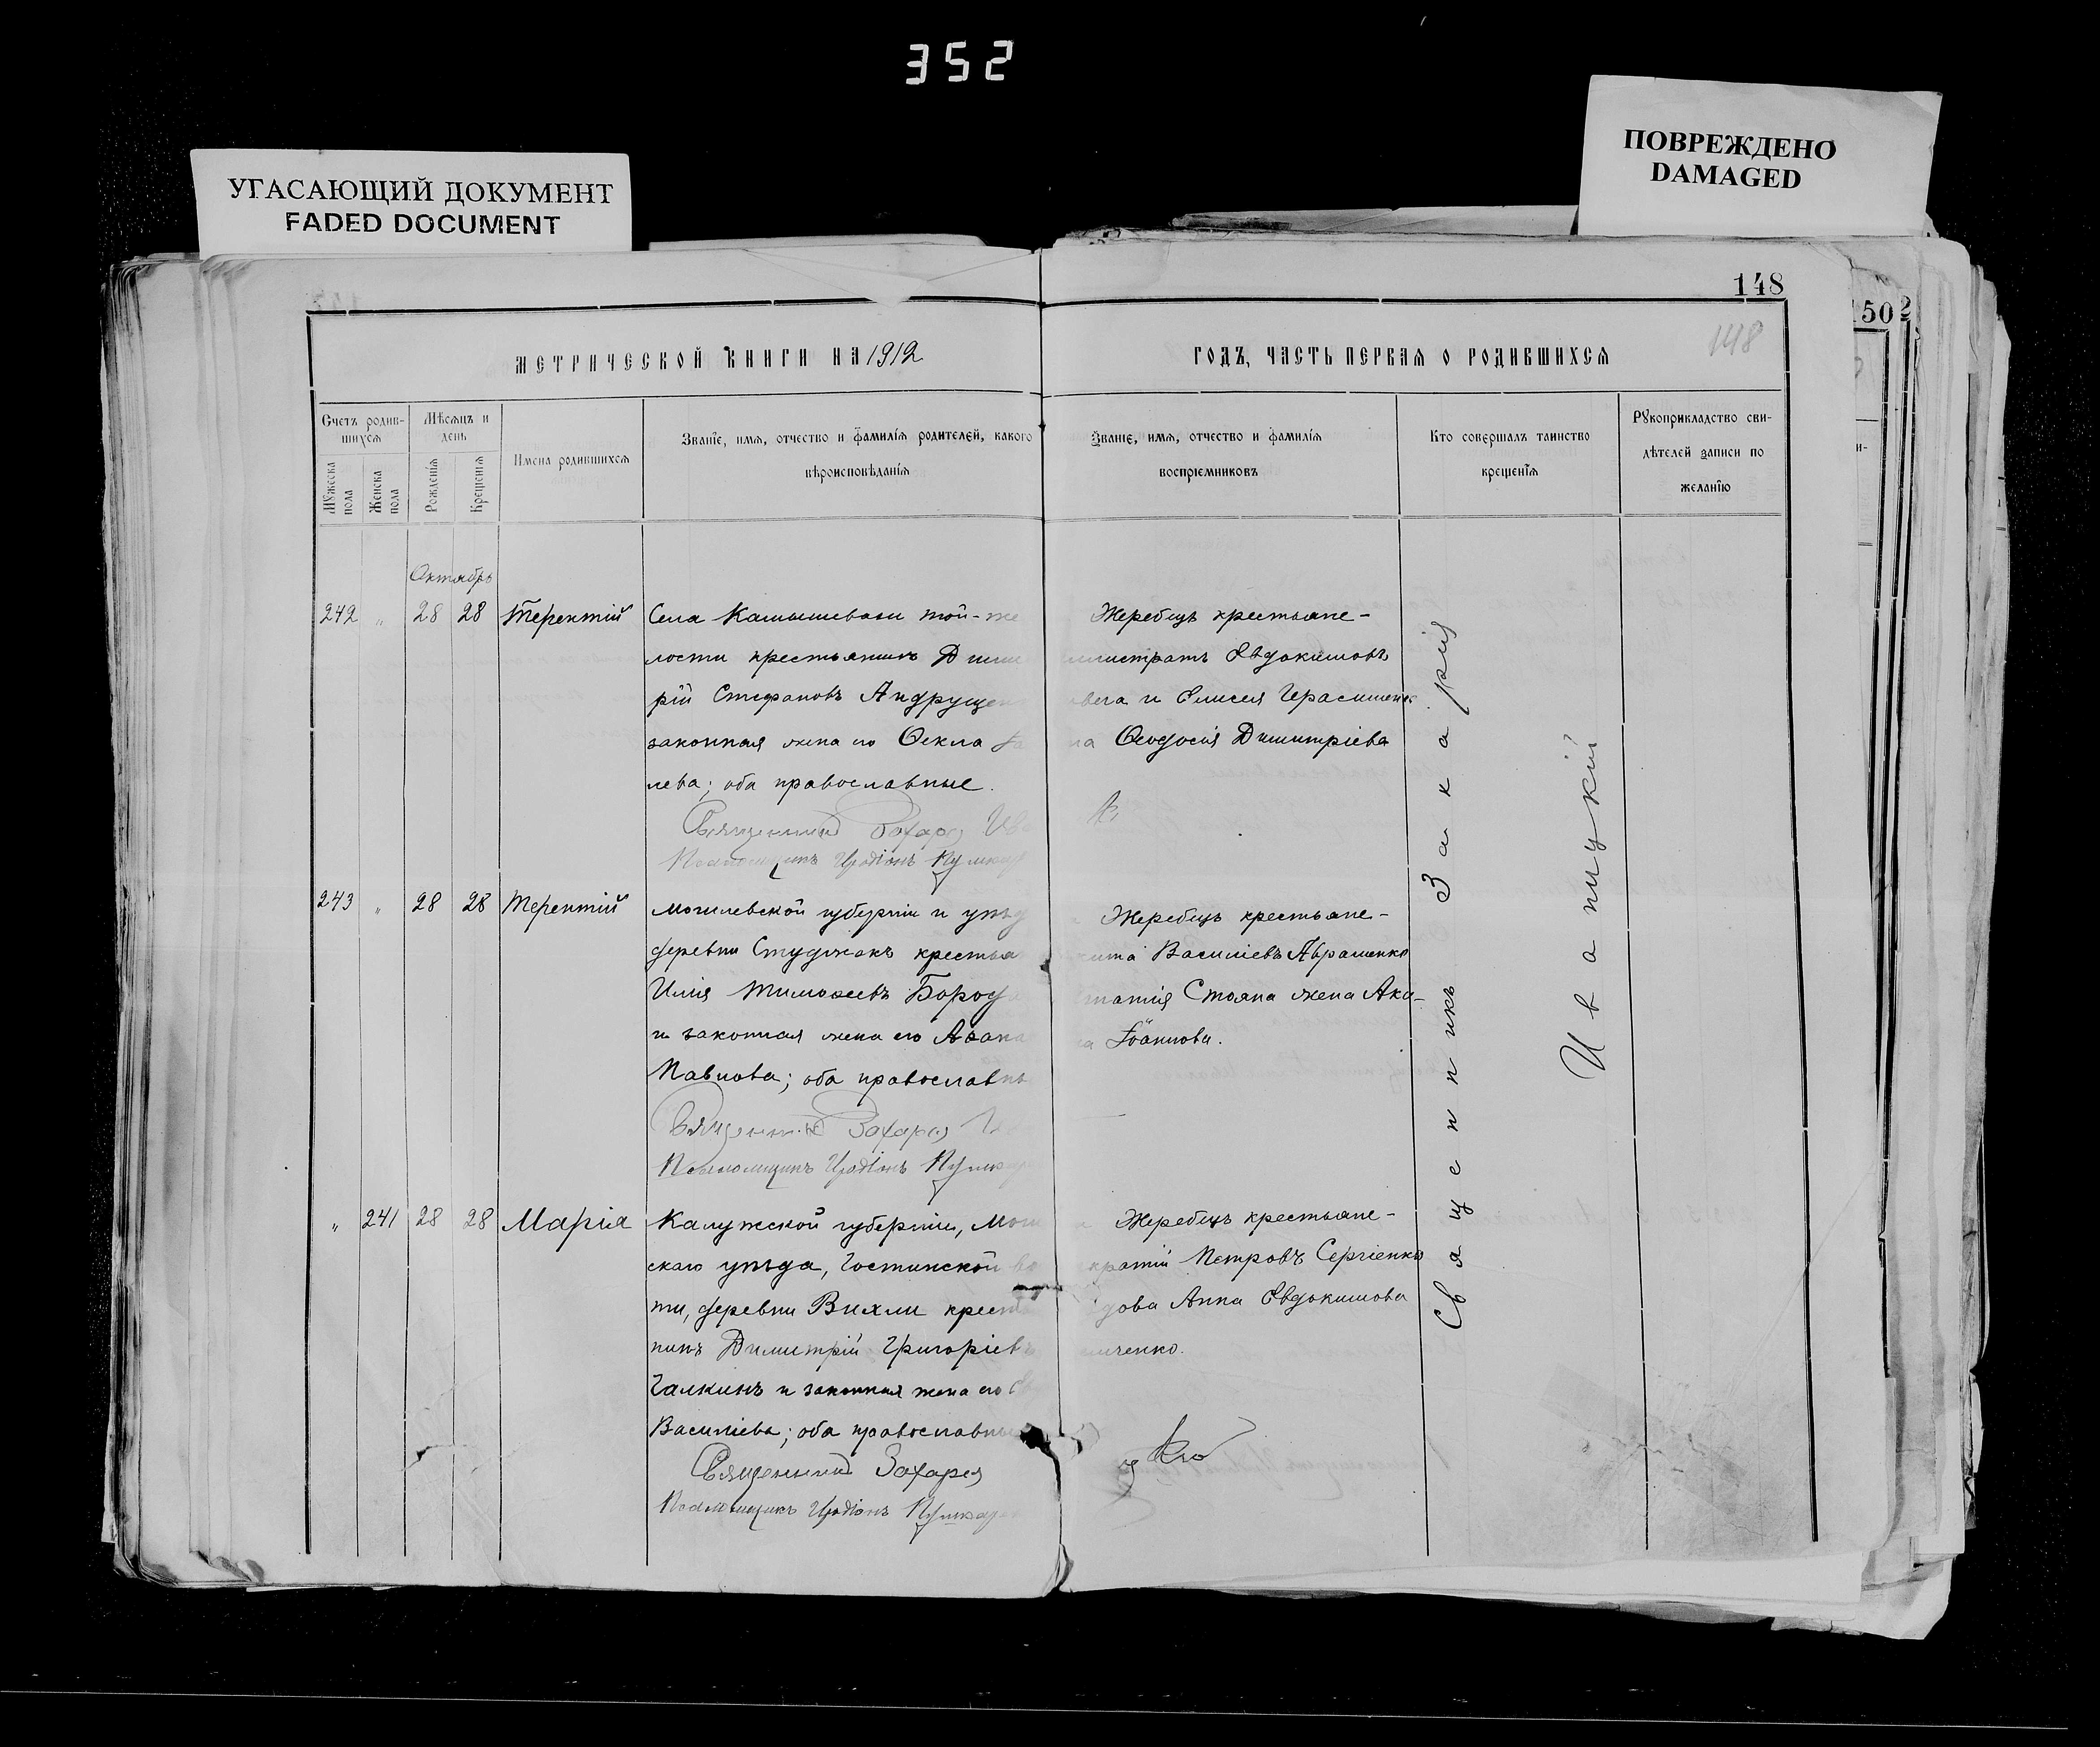 352
УГАСАЮЩИЙ ДОКУМЕНТ
FADED DOCUMENT
ПОВРЕЖДЕНО
DAMAGED
148
502
148
МЕТРИЧЕСКОЙ КНИГИ НА 1912
ГОДЪ, ЧАСТЬ ПЕРВАЯ О РОДИВШИХСЯ
Счетъ родив-
шихся
Мѣсяцъ и
день
Мужеска
пола
Женска
пола
Рожденія
Крещенія
Имена родившихся
Званіе, имя, отчество и фамилія родителей, какого
вѣроисповѣданія
Званіе, имя, отчество и фамилія
воспріемниковъ
Кто совершалъ таинство
крещенія
Рукоприкладство сви-
дѣтелей записи по
желанію
Октябрь
242 " 28 28 Терентій
Села Камышевахи той-же
лости крестьянинъ Дими
рій Стефановъ Андрущен
законная жена его Ѳекла
лева; оба православные.
Священникъ Захарія
Псаломщикъ Иродіонъ
Жеребецъ крестьяне-
Евдокимовъ
и Елисея Герасименко
Ѳеодосія Димитріева
243 " 28 28 Терентій
Могилевской губерніи и уѣзд
деревни крестья
Илія Тимоѳеевъ Бород
и законная жена его
Павлова; оба православн
Священникъ Захарія
Псаломщикъ Иродіонъ
Жеребецъ крестьяне-
Василіевъ Авраменко
Стояна жена Аки-
Іоаннова.
" 241 28 28 Марія
Калужской губерніи,
скаго уѣзда,
ти, деревни Вихли крест
нинъ Димитрій Григоріевъ
Галкинъ и законная жена его
Василіева; оба православны
Священникъ Захарія
Псаломщикъ Иродіонъ
Жеребецъ крестьяне-
Петровъ Сергіенко
дова Анна Евдокимова
ченко.
Священникъ Захарія
Иваницкій